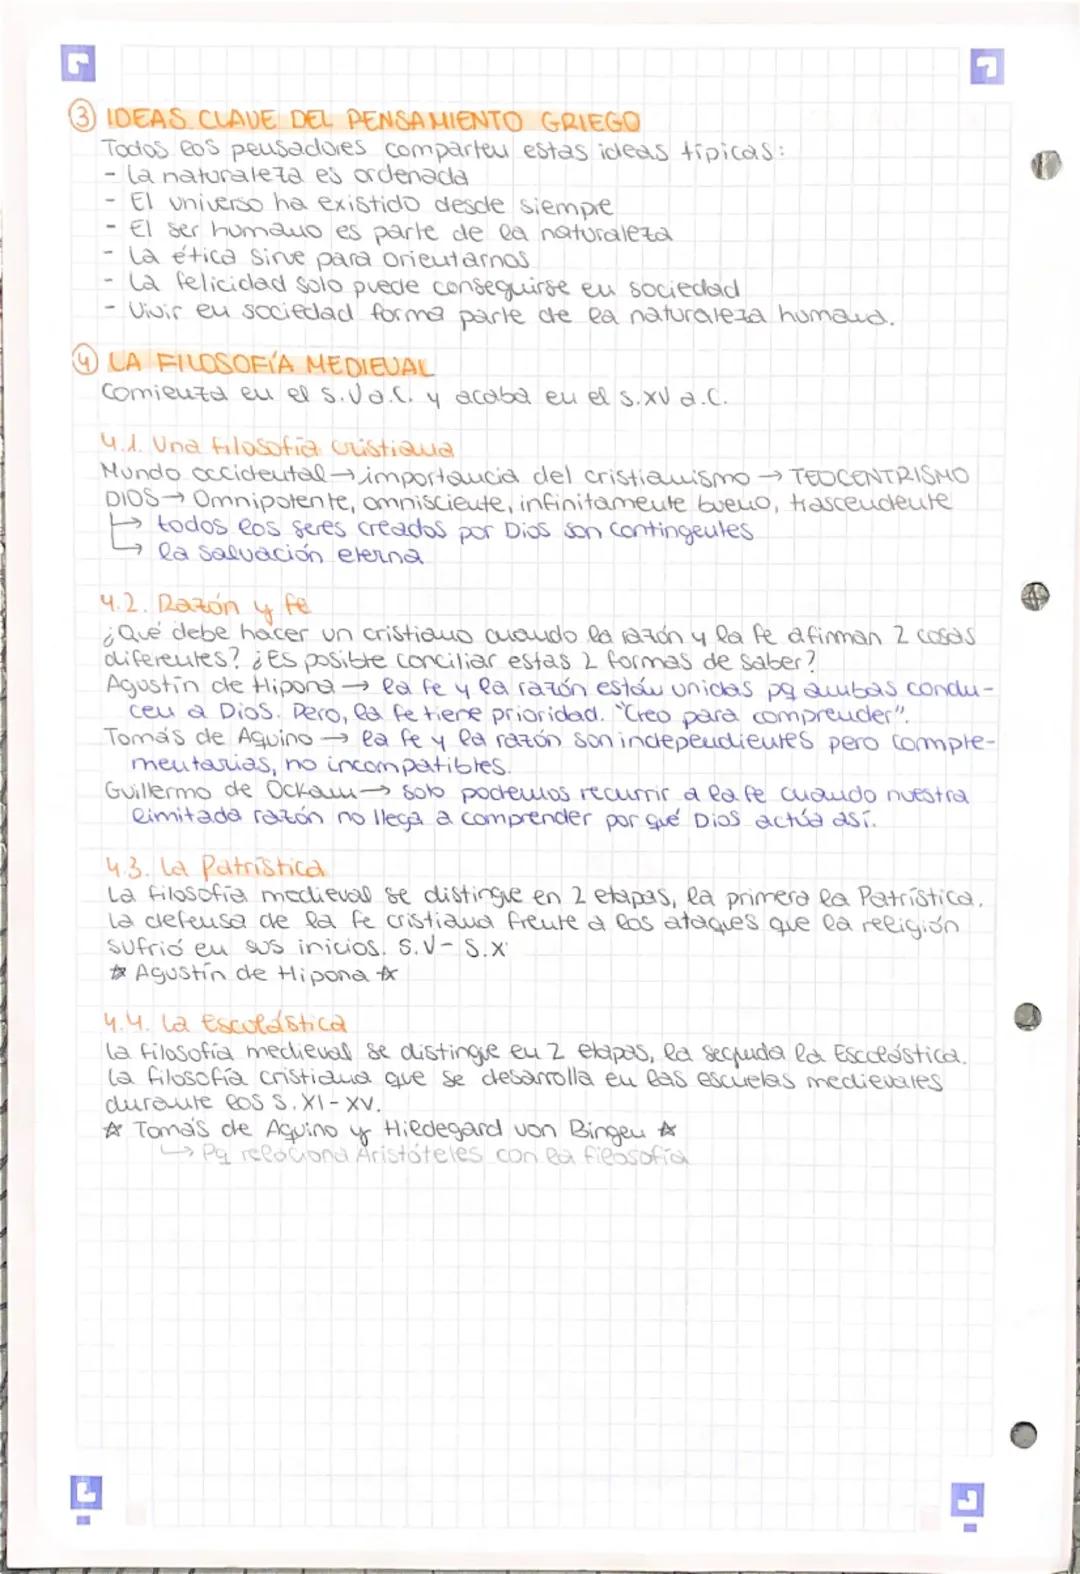 ③ IDEAS CLAVE DEL PENSAMIENTO GRIEGO
Todos los pensadores comparten estas ideas típicas:
- La naturaleza es ordenada
- El universo ha existido desde siempre
- El ser humano es parte de la naturaleza
- La ética sirve para orientarnos
- La felicidad solo puede conseguirse en sociedad
- Vivir en sociedad forma parte de la naturaleza humana.
④ LA FILOSOFÍA MEDIEVAL
Comienza en el s.V a.C. y acaba en el s.XV a.C.
4.1. Una filosofía cristiana
Mundo occidental → importancia del cristianismo → TEOCENTRISMO
DIOS → Omnipotente, omnisciente, infinitamente bueno, trascendente
↳ todos los seres creados por Dios son contingentes
↳ la salvación eterna
4.2. Razón y fe
¿Qué debe hacer un cristiano cuando la razón y la fe afirman 2 cosas
diferentes? ¿Es posible conciliar estas 2 formas de saber?
Agustín de Hipona → la fe y la razón están unidas pq ambas condu-
cen a Dios. Pero, la fe tiene prioridad. "Creo para comprender".
Tomás de Aquino → la fe y la razón son independientes pero comple-
mentarias, no incompatibles.
Guillermo de Ockam → solo podemos recurrir a la fe cuando nuestra
limitada razón no llega a comprender por qué Dios actúa así.
4.3. La Patrística
La filosofía medieval se distingue en 2 etapas, la primera la Patrística.
La defensa de la fe cristiana frente a los ataques que la religión
sufrió en sus inicios. S.V - S.X
☆ Agustín de Hipona ☆
4.4. La Escolástica
La filosofía medieval se distingue en 2 etapas, la segunda la Escolástica.
La filosofía cristiana que se desarrolla en las escuelas medievales
durante los S. XI - XV.
☆ Tomás de Aquino y Hildegard von Bingen ☆
↳ Pq relaciona Aristóteles con la filosofía